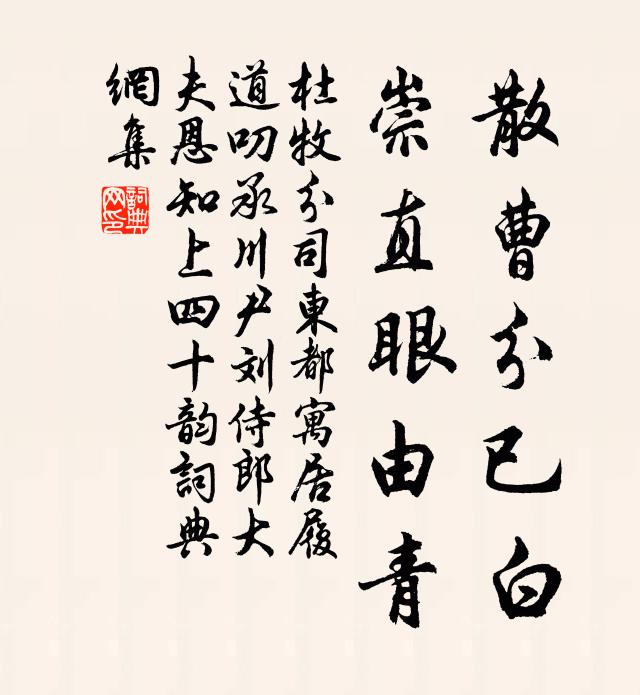 散曹分已白
崇直眼由青
杜牧分司東都寓居履
道叨承川尹刘侍郎大
夫恩知上四十韵詞典
網集
詞典網印